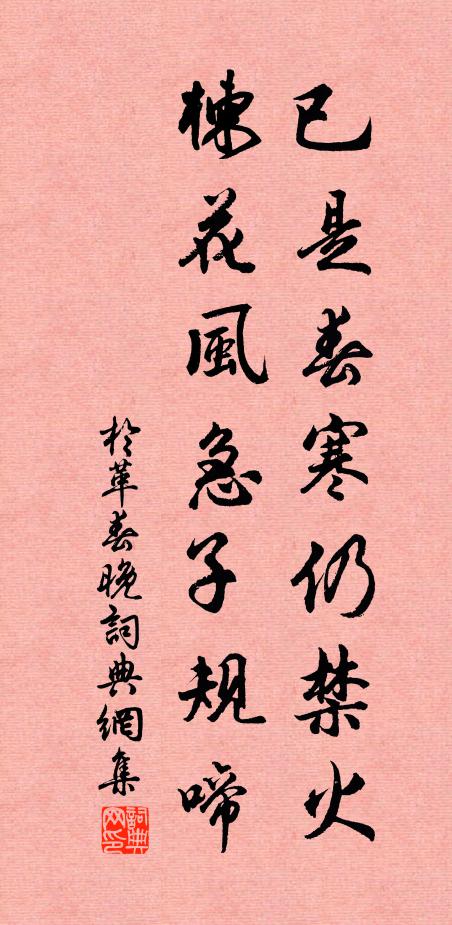 已是春寒仍禁火
楝花風急子規啼
於革春晚詞典網集
詞典
网印